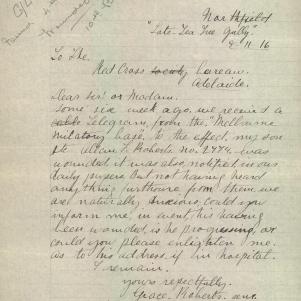 Northfield
"Late-Tea Tree Gully"
9-11-16
To The.
Red Cross society bureau.
Adelaide.
Dear sir or Madam.
Some six week ago, we received a
Telegram, from the "Melbourne
Military base, to the effect my son
Pte Allan F. Roberts No. 2774 was
wounded it was also notified in our
daily papers. But not having heard
any thing furthure from them we
are naturally, anxious, could you
inform me, in what, his having
been wounded, is he progressing, or
could you please enlighten me.
as to his address, if in hospital.
I remain.
yours respectfully.
Grace Roberts. snr.